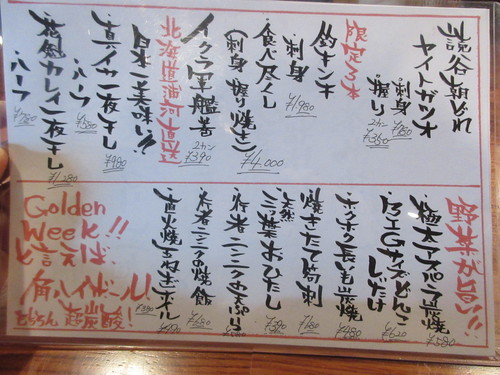 読谷朝どれ
ヤイトガツオ
・刺身 ¥780
・握り 2カン ¥350
限定3本
釣キンキ
・刺身 ¥1,980
・食べ尽くし
(刺身 握り 焼き) ¥4,000
・イクラ軍艦 2カン ¥390
北海道 直送
日本一美味い!?
・真イカ一夜干し ¥980
・ハーフ ¥580
・宗八カレイ一夜干し ¥1,280
・ハーフ ¥780
野菜が旨い!!
・極太アスパラ炭焼 ¥580
・BIGサイズどんこしいたけ ¥620
・ホクホク長いも炭焼 ¥480
・焼きたて筍刺 ¥680
・天然三つ葉おひたし ¥380
・行者ニンニクの天ぷら ¥580
・行者ニンニクの焼飯 ¥680
・直火焼き玉ねぎ
Golden
Week!!
と言えば、
角ハイボール! ¥390
もちろん超炭酸!